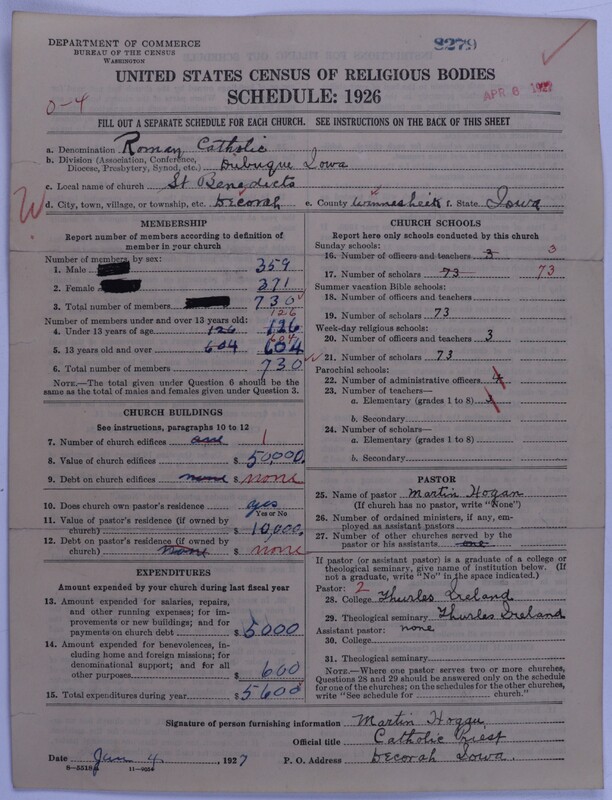 DEPARTMENT OF COMMERCE
BUREAU OF THE CENSUS
WASHINGTON
8279
APR 8 1927
UNITED STATES CENSUS OF RELIGIOUS BODIES
SCHEDULE: 1926
0-4
FILL OUT A SEPARATE SCHEDULE FOR EACH CHURCH. SEE INSTRUCTIONS ON THE BACK OF THIS SHEET
a. Denomination Roman Catholic
b. Division (Association, Conference, Diocese, Presbytery, Synod, etc.) Dubuque Iowa
c. Local name of church St Benedicts
d. City, town, village, or township, etc. Decorah e. County Winnesheik f. State Iowa
MEMBERSHIP
Report number of members according to definition of
member in your church
Number of members, by sex:
1. Male 359
2. Female 371
3. Total number of members 730
Number of members under and over 13 years old:
126
4. Under 13 years of age 126 126
604
5. 13 years old and over 604 604
6. Total number of members 730
NOTE.—The total given under Question 6 should be
the same as the total of males and females given under Question 3.
CHURCH BUILDINGS
See instructions, paragraphs 10 to 12
7. Number of church edifices one 1
8. Value of church edifices $ 50,000
9. Debt on church edifices none $ none
10. Does church own pastor's residence yes
Yes or No
11. Value of pastor's residence (if owned by
church) $ 10,000
12. Debt on pastor's residence (if owned by
church) none $ none
EXPENDITURES
Amount expended by your church during last fiscal year
13. Amount expended for salaries, repairs,
and other running expenses; for im-
provements or new buildings; and for
payments on church debt $ 5000
14. Amount expended for benevolences, in-
cluding home and foreign missions; for
denominational support; and for all
other purposes 600
15. Total expenditures during year $ 5600
CHURCH SCHOOLS
Report here only schools conducted by this church
Sunday schools:
16. Number of officers and teachers 3 3
17. Number of scholars 73 73
Summer vacation Bible schools:
18. Number of officers and teachers
19. Number of scholars 73
Week-day religious schools:
20. Number of officers and teachers 3
21. Number of scholars 73
Parochial schools:
22. Number of administrative officers 4
23. Number of teachers—
a. Elementary (grades 1 to 8)
b. Secondary
24. Number of scholars—
a. Elementary (grades 1 to 8)
b. Secondary
PASTOR
25. Name of pastor Martin Hogan
(If church has no pastor, write "None")
26. Number of ordained ministers, if any, em-
ployed as assistant pastors
27. Number of other churches served by the
pastor or his assistants one
If pastor (or assistant pastor) is a graduate of a college or
theological seminary, give name of institution below. (If
not a graduate, write "No" in the space indicated.)
Pastor: 2
28. College Thurles Ireland
29. Theological seminary Thurles Ireland
Assistant pastor: none
30. College
31. Theological seminary
NOTE.—Where one pastor serves two or more churches,
Questions 28 and 29 should be answered only on the schedule
for one of the churches; on the schedules for the other churches,
write "See schedule for church."
Signature of person furnishing information Martin Hogan
Official title Catholic Priest
Date Jan 4, 1927 P. O. Address Decorah Iowa.